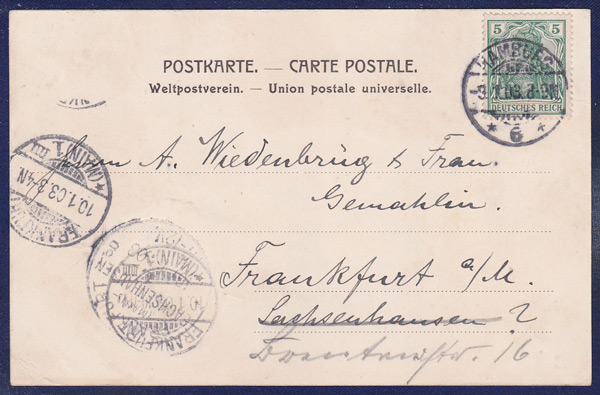 5 5
DEUTSCHES REICH
HAMBURG
9.1.03. 8-9N
* 6 *
POSTKARTE. — CARTE POSTALE.
Weltpostverein. — Union postale universelle.
FRANKFURT
(MAIN) 1.
10.1.03. 3-4N
Herrn A. Wiedenbrüg & Frau
Gemahlin.
Frankfurt a/M.
Sachsenhausen ?
16
FRANKFURT
(MAIN)
SACHSENHAUSEN